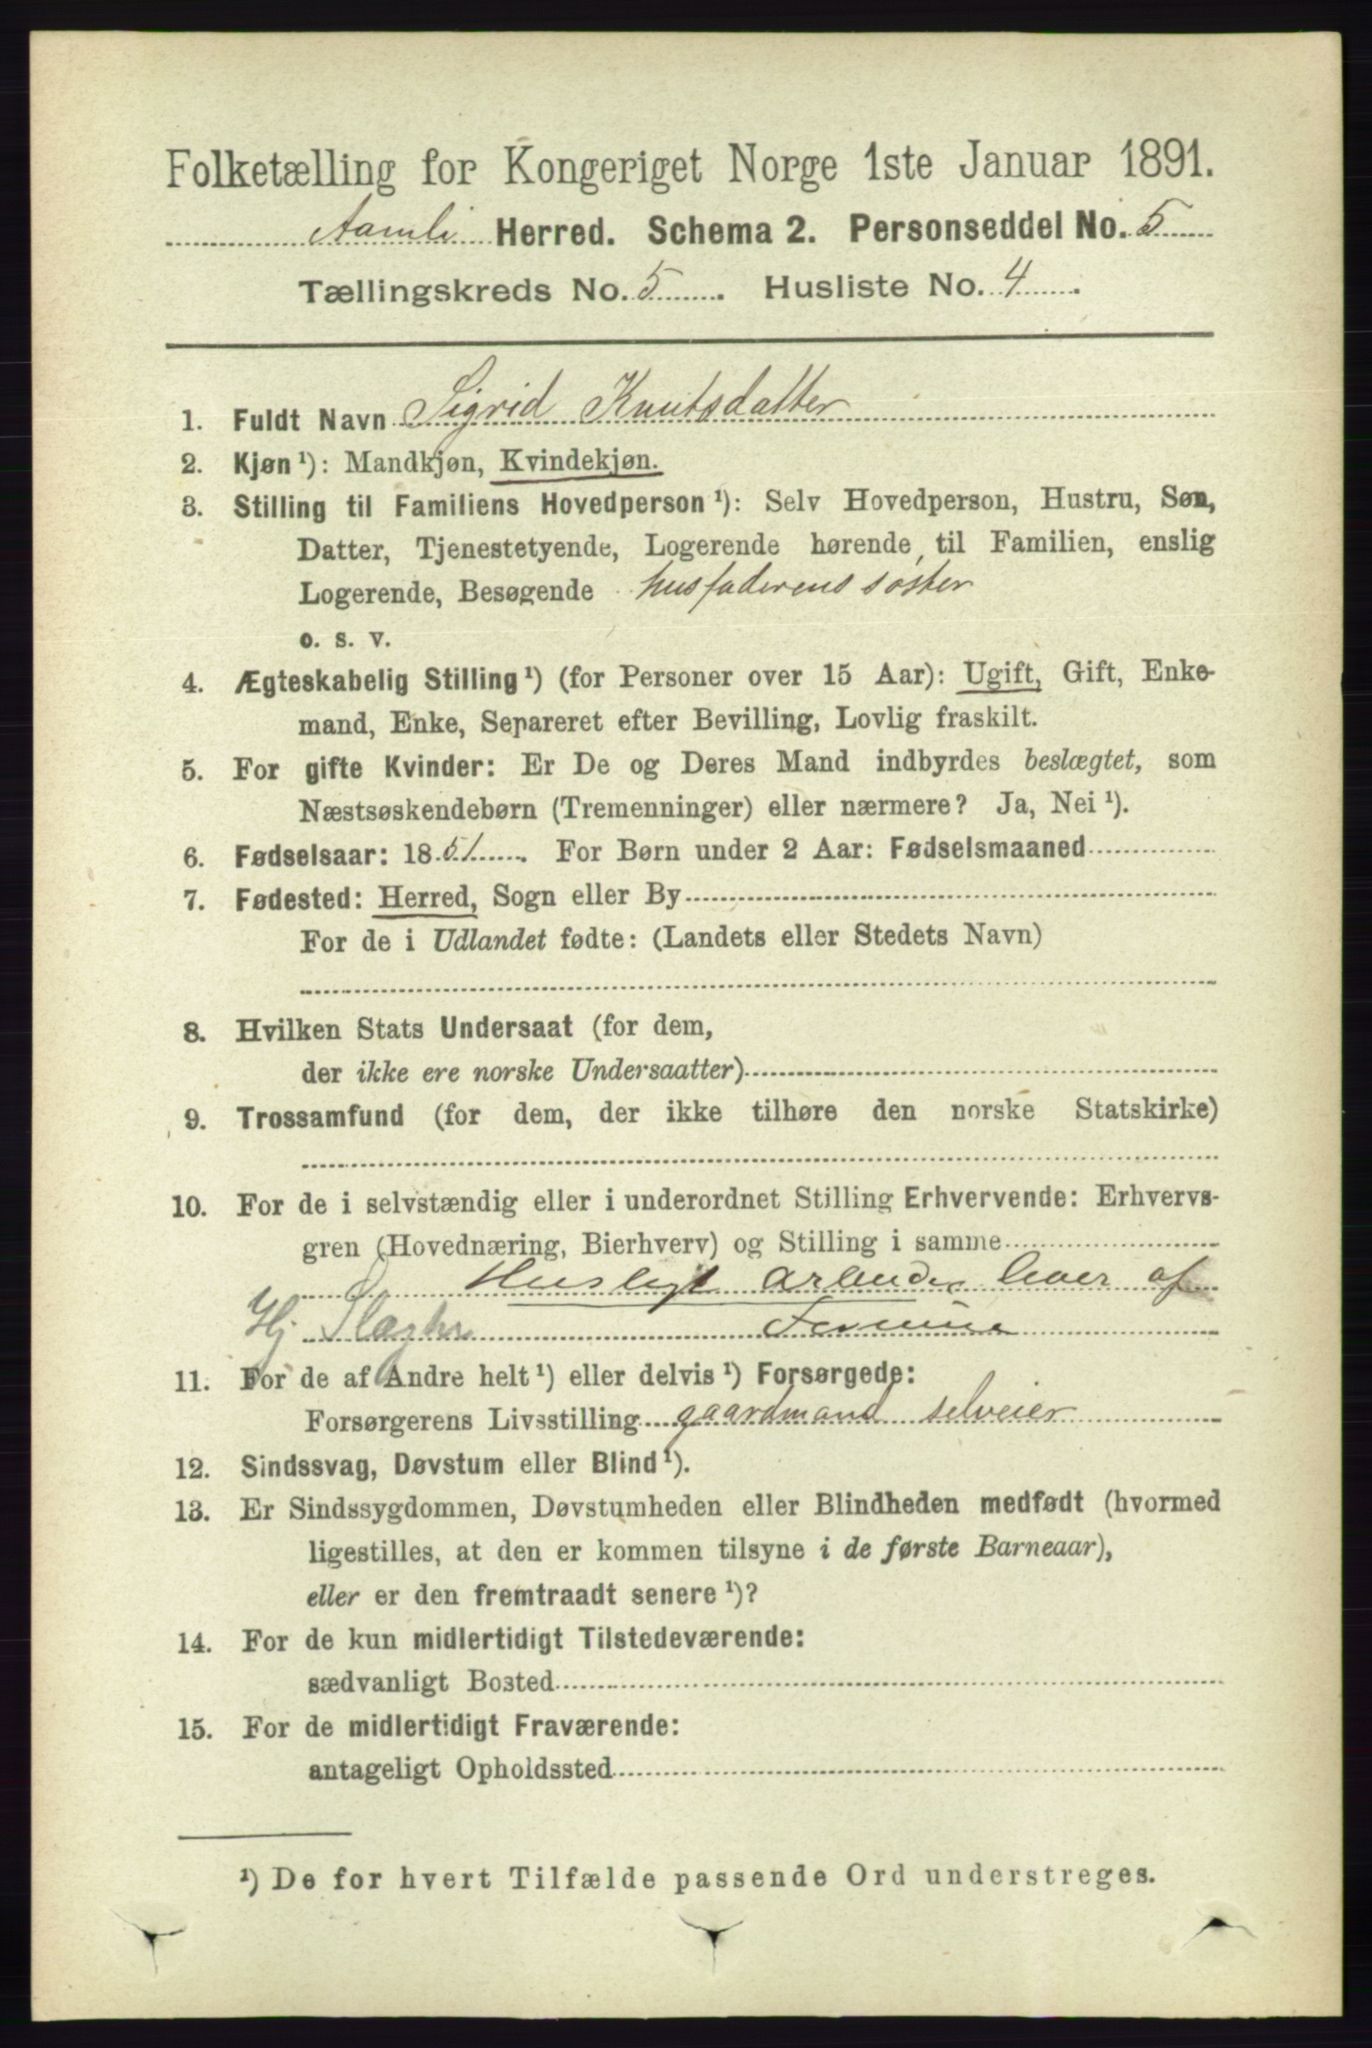 Folketælling for Kongeriget Norge 1ste Januar 1891.
Aamli Herred. Schema 2. Personseddel No. 5
Tællingskreds No. 5. Husliste No. 4.
1. Fuldt Navn Sigrid Knutsdatter
2. Kjøn¹): Mandkjøn, Kvindekjøn.
3. Stilling til Familiens Hovedperson¹): Selv Hovedperson, Hustru, Søn,
Datter, Tjenestetyende, Logerende hørende til Familien, enslig
Logerende, Besøgende husfaderens søster
o. s. v.
4. Ægteskabelig Stilling¹) (for Personer over 15 Aar): Ugift, Gift, Enke-
mand, Enke, Separeret efter Bevilling, Lovlig fraskilt.
5. For gifte Kvinder: Er De og Deres Mand indbyrdes beslægtet, som
Næstsøskendebørn (Tremenninger) eller nærmere? Ja, Nei¹).
6. Fødselsaar: 1851. For Børn under 2 Aar: Fødselsmaaned
7. Fødested: Herred, Sogn eller By
For de i Udlandet fødte: (Landets eller Stedets Navn)
8. Hvilken Stats Undersaat (for dem,
der ikke ere norske Undersaatter)
9. Trossamfund (for dem, der ikke tilhøre den norske Statskirke)
10. For de i selvstændig eller i underordnet Stilling Erhvervende: Erhvervs-
gren (Hovednæring, Bierhverv) og Stilling i samme
Husligt arbeide lever af
Hj Slægtn
11. For de af Andre helt¹) eller delvis¹) Forsørgede:
Forsørgerens Livsstilling gaardmand selveier
12. Sindssvag, Døvstum eller Blind¹).
13. Er Sindssygdommen, Døvstumheden eller Blindheden medfødt (hvormed
ligestilles, at den er kommen tilsyne i de første Barneaar),
eller er den fremtraadt senere¹)?
14. For de kun midlertidigt Tilstedeværende:
sædvanligt Bosted
15. For de midlertidigt Fraværende:
antageligt Opholdssted
¹) De for hvert Tilfælde passende Ord understreges.